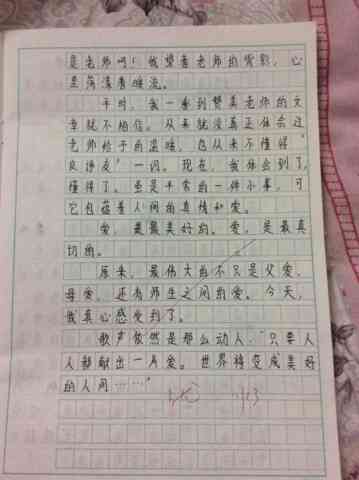 是老师吗！我望着老师的背影，心
里荡漾着暖流。
平时，我一看到赞美老师的文
章就不相信。从来就没真正体会过
老师给予的温暖，也从来不懂得“
良师友”一词。现在，我体会到了，
懂得了。虽是平常的一件小事，可
它包蕴着人间的真情和爱。
爱，是最美好的。爱，是最真
切的。
原来，最伟大的不只是父爱，
母爱，还有师生之间的爱。今天，
我真心感受到了。
歌声依然是那么动人：“只要人
人都献出一片爱。世界将变成美好
的人间……”